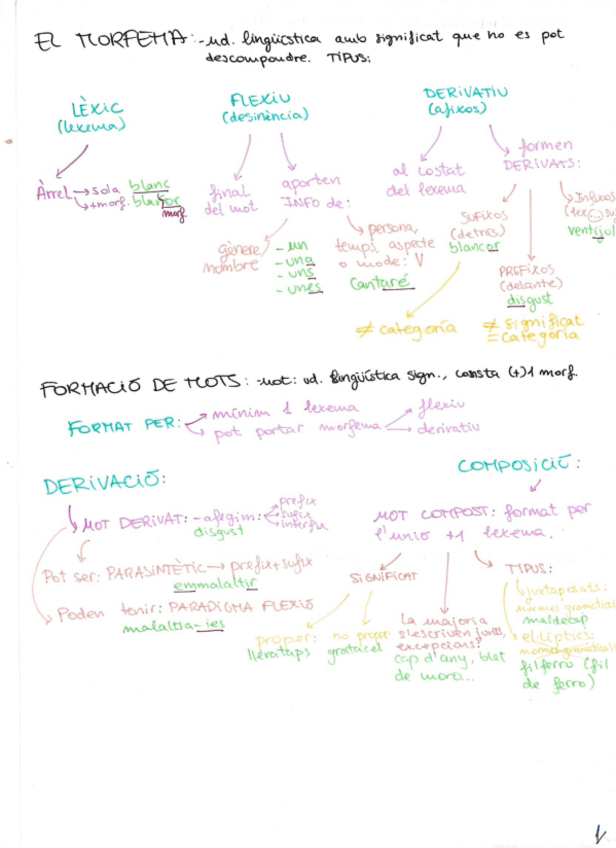 EL MORFEMA: -ud. lingüística amb significat que no es pot
descompondre. TIPUS:
LÈXIC
(lexema)
Àrrel → sola blanc
→ +morf. blancor
morf
FLEXIU
(desinència)
final
del mot
aporten
INFO de:
gènere
nombre
- un
- una
- uns
- unes
persona,
temps, aspecte
o mode: V
Cantaré
DERIVATIU
(afixos)
al costat
del lexema
formen
DERIVATS:
SUFIXOS
(detrás)
blancor
≠ categoría
PREFIXOS
(delante)
disgust
≠ significat
= categoría
Infixos
(lex
ventijol
FORMACIÓ DE MOTS: -mot: ud. lingüística sign., consta (+)1 morf.
FORMAT PER: → mínim 1 lexema
→ pot portar morfema → flexiu
→ derivatiu
DERIVACIÓ:
MOT DERIVAT: -afegim: prefix
sufix
interfix
disgust
Pot ser: PARASINTÈTIC → prefix+sufix
emmalaltir
Poden tenir: PARADIGMA FLEXIU
malaltia-ies
COMPOSICIÓ:
MOT COMPOST: format per
l'unio +1 lexema.
SIGNIFICAT
proper:
llevataps
no propar
gratacel
La majoria
s'escriven junts,
excepcions:
cap d'any, blat
de moro...
TIPUS:
juxtaposats:
normes gramaticals
maldecap
el·líptics:
normes gramaticals
filferro (fil
de ferro)
1